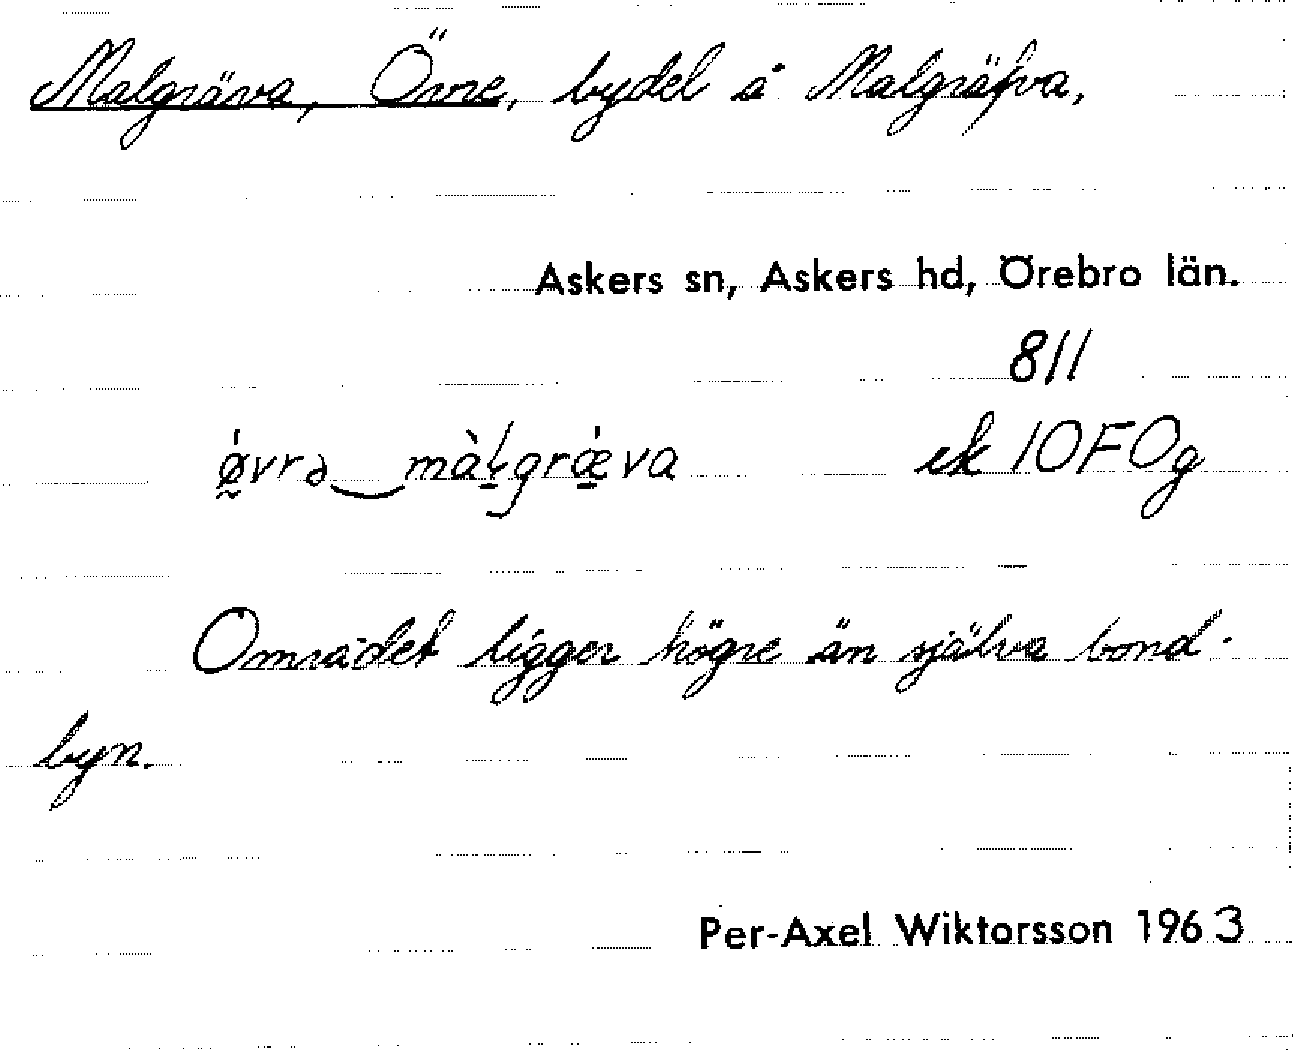 Malgräva, Övre, bydel å Malgräfva,
Askers sn, Askers hd, Örebro län.
811
ǿ̰vrə‿màḷgrǽ̱va ek 10F0g
Området ligger högre än själva bond-
byn.
Per-Axel Wiktorsson 1963